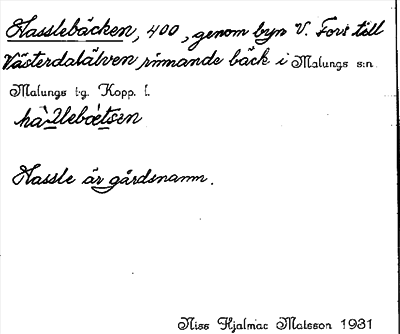 Hasslebäcken, 400, genom byn V. Fors till
Västerdalälven rinnande bäck i Malungs s:n
Malungs tg. Kopp. l.
Hassle är gårdsnamn.
Niss Hjalmar Matsson 1931